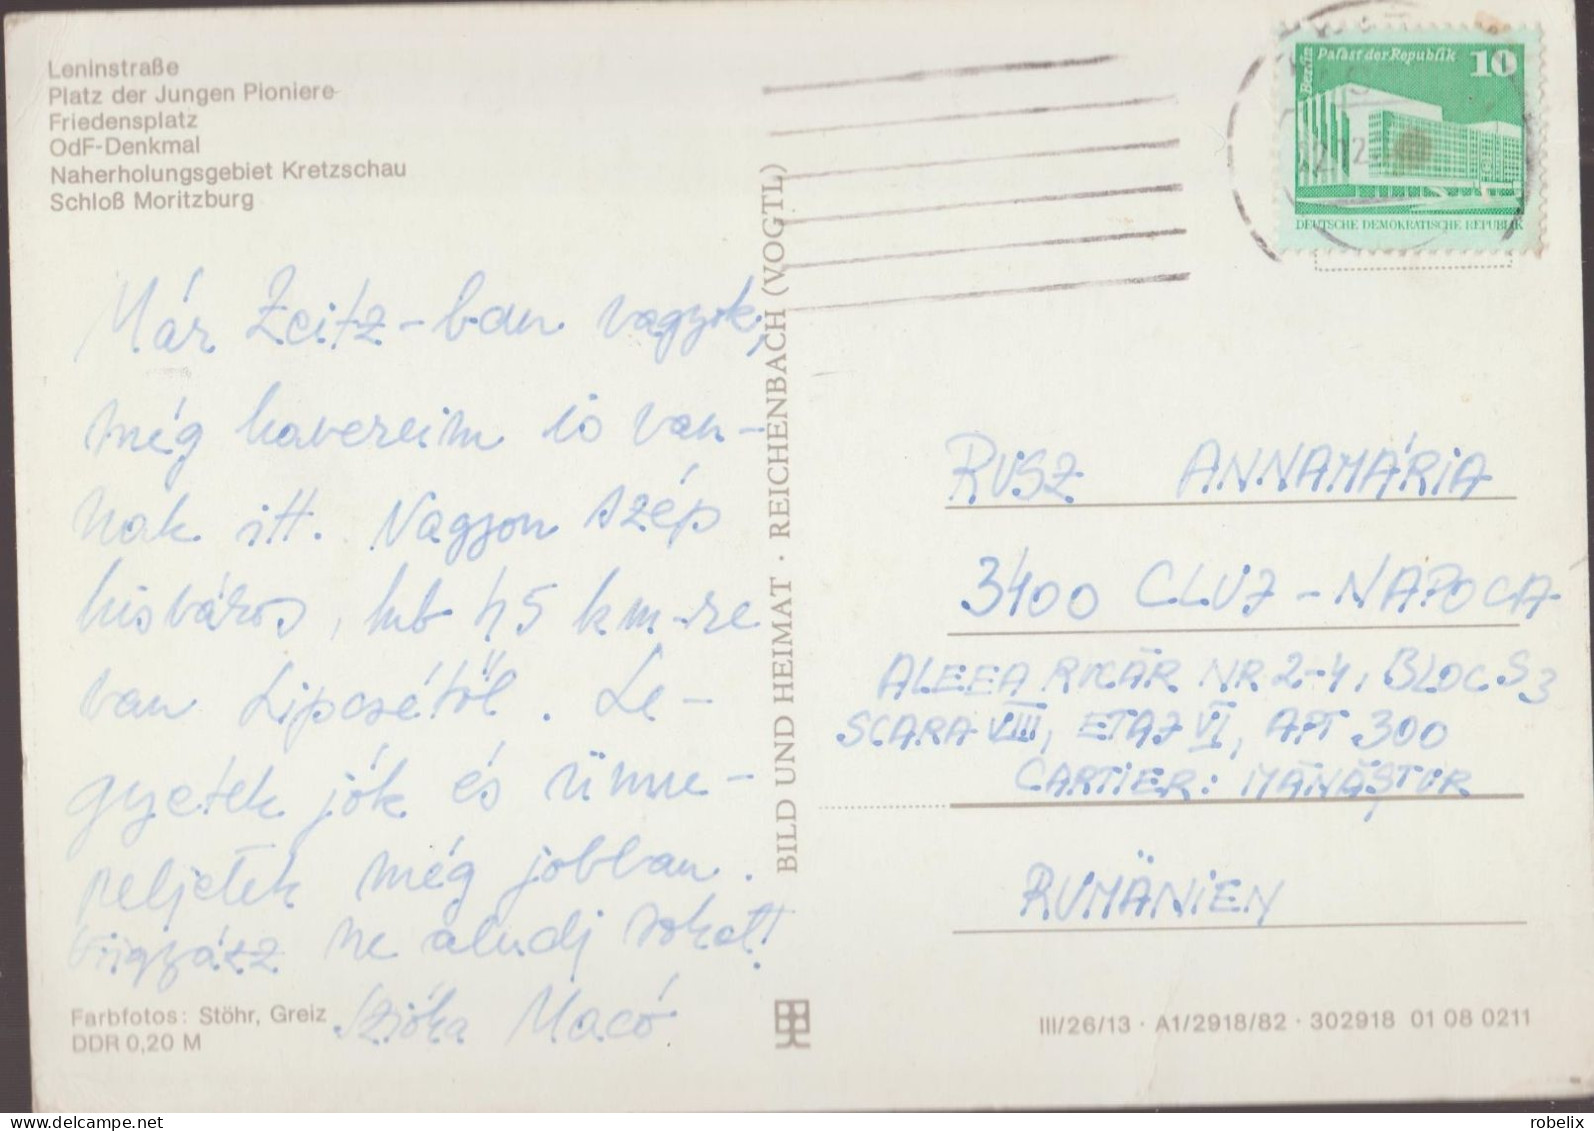 Leninstraße
Platz der Jungen Pioniere
Friedensplatz
OdF-Denkmal
Naherholungsgebiet Kretzschau
Schloß Moritzburg
Már Zeitz-ban vagyok,
még havereim is van-
nak itt. Nagyon szép
kisváros, kb 45 km-re
van Lipcsétől. Le-
gyetek jók és ünne-
peljetek még jobban.
Vigyázz ne aludj sokat!
Szióka Macó
Farbfotos: Stöhr, Greiz
DDR 0,20 M
BILD UND HEIMAT · REICHENBACH (VOGTL)
Berlin
Palast der Republik 10
DEUTSCHE DEMOKRATISCHE REPUBLIK
RUSZ ANNAMÁRIA
3400 CLUJ-NAPOCA
ALEEA NR 2-4, BLOC S3
SCARA VIII, ETAJ VI, APT 300
CARTIER: MĂNĂȘTUR
RUMÄNIEN
III/26/13 · A1/2918/82 · 302918 01 08 0211
robelix